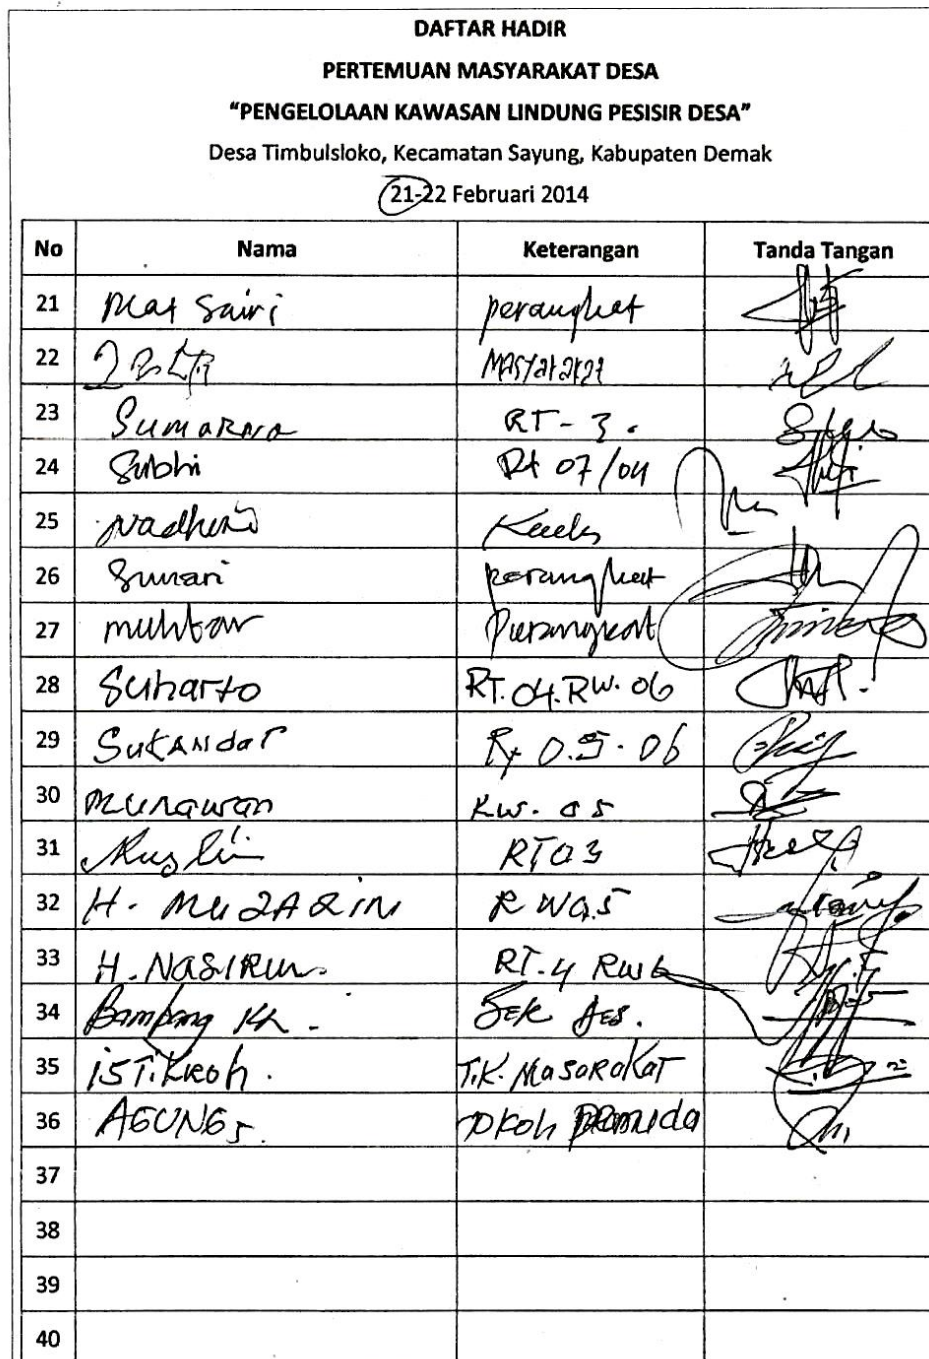 DAFTAR HADIR
PERTEMUAN MASYARAKAT DESA
"PENGELOLAAN KAWASAN LINDUNG PESISIR DESA"
Desa Timbulsloko, Kecamatan Sayung, Kabupaten Demak
21-22 Februari 2014
No Nama Keterangan Tanda Tangan
21 Mat Sairi perangkat
22 Masyarakat
23 Sumarno RT-3.
24 Subhi Rt 07/04
25 Nadheri Kades
26 Sunari perangkat
27 muhtar Perangkat
28 Suharto RT.04.RW.06
29 SuKANdar Rt 0.5.06
30 Munawan RW. 05
31 Muslim RT03
32 H. MUZAQIN RW05
33 H. NASIRUN. RT.4 RW6
34 Bambang Kh. SEK DES.
35 iSTiKROh. T.K. MaSORaKaT
36 AGUNG S. TOKOh PEMUda
37
38
39
40